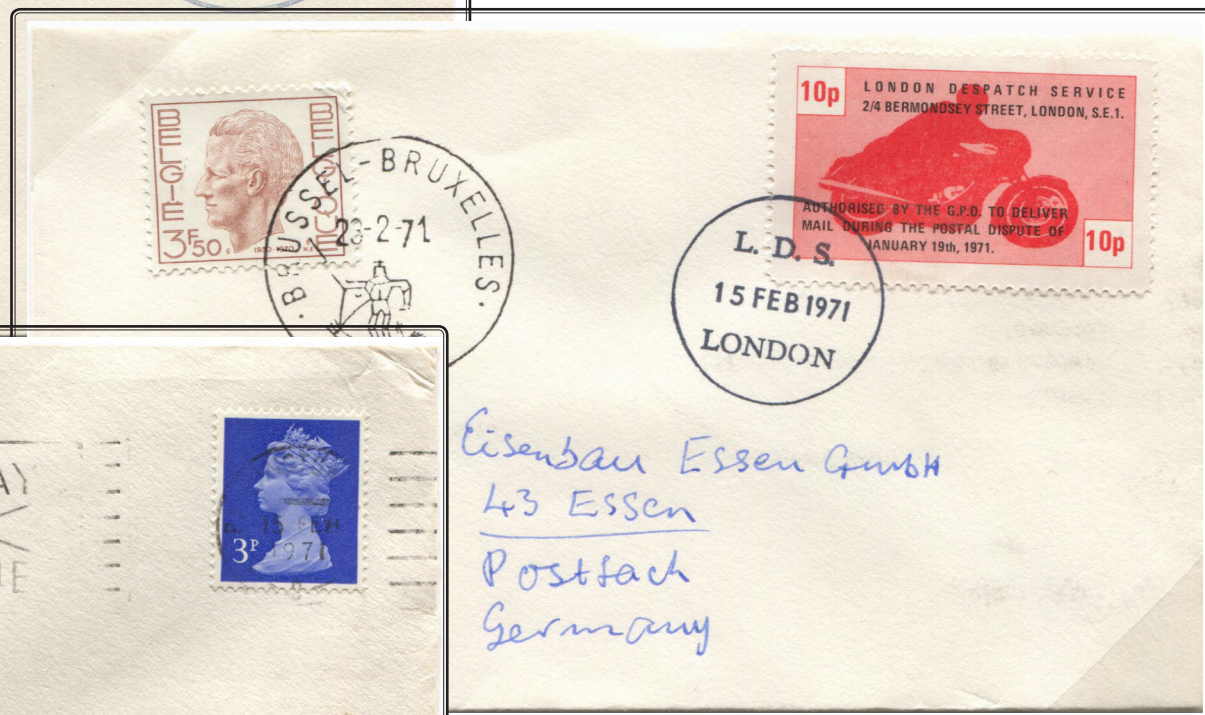 BELGIE
BELGIQUE
3F50
1930-1970
BRUSSEL-BRUXELLES
23-2-71
10p
LONDON DESPATCH SERVICE
2/4 BERMONDSEY STREET, LONDON, S.E.1.
AUTHORISED BY THE G.P.O. TO DELIVER
MAIL DURING THE POSTAL DISPUTE OF
JANUARY 19th, 1971.
10p
L. D. S.
15 FEB 1971
LONDON
Eisenbau Essen GmbH
43 Essen
Postfach
Germany
AY
IE
15 FEB
1971
3P